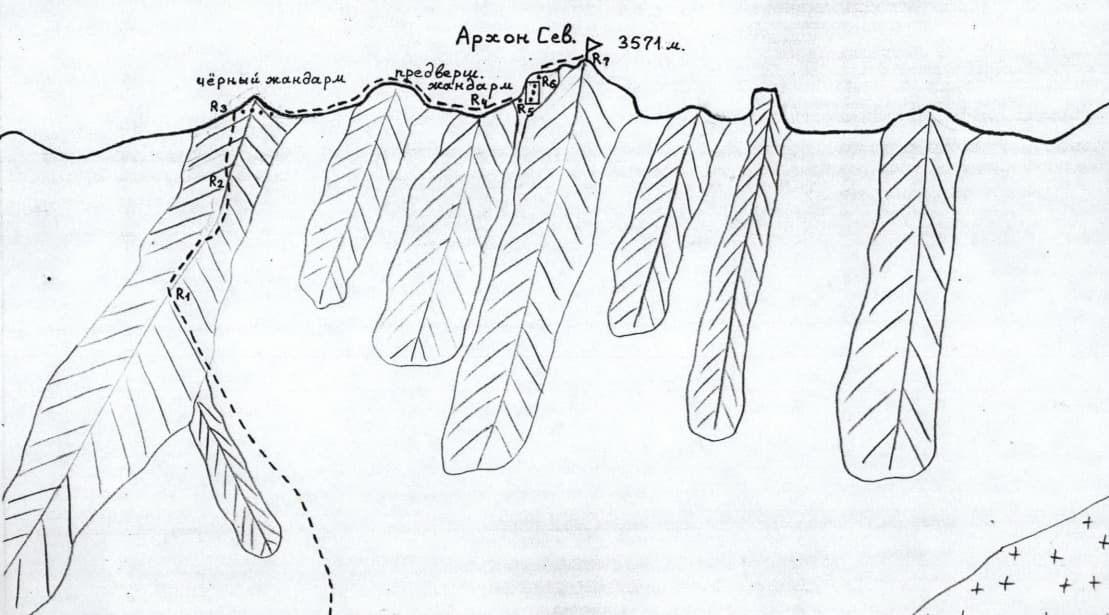 Архон Сев.
3571 м.
R7
чёрный жандарм
предверш.
жандарм
R6
R3
R4
R5
R2
R1